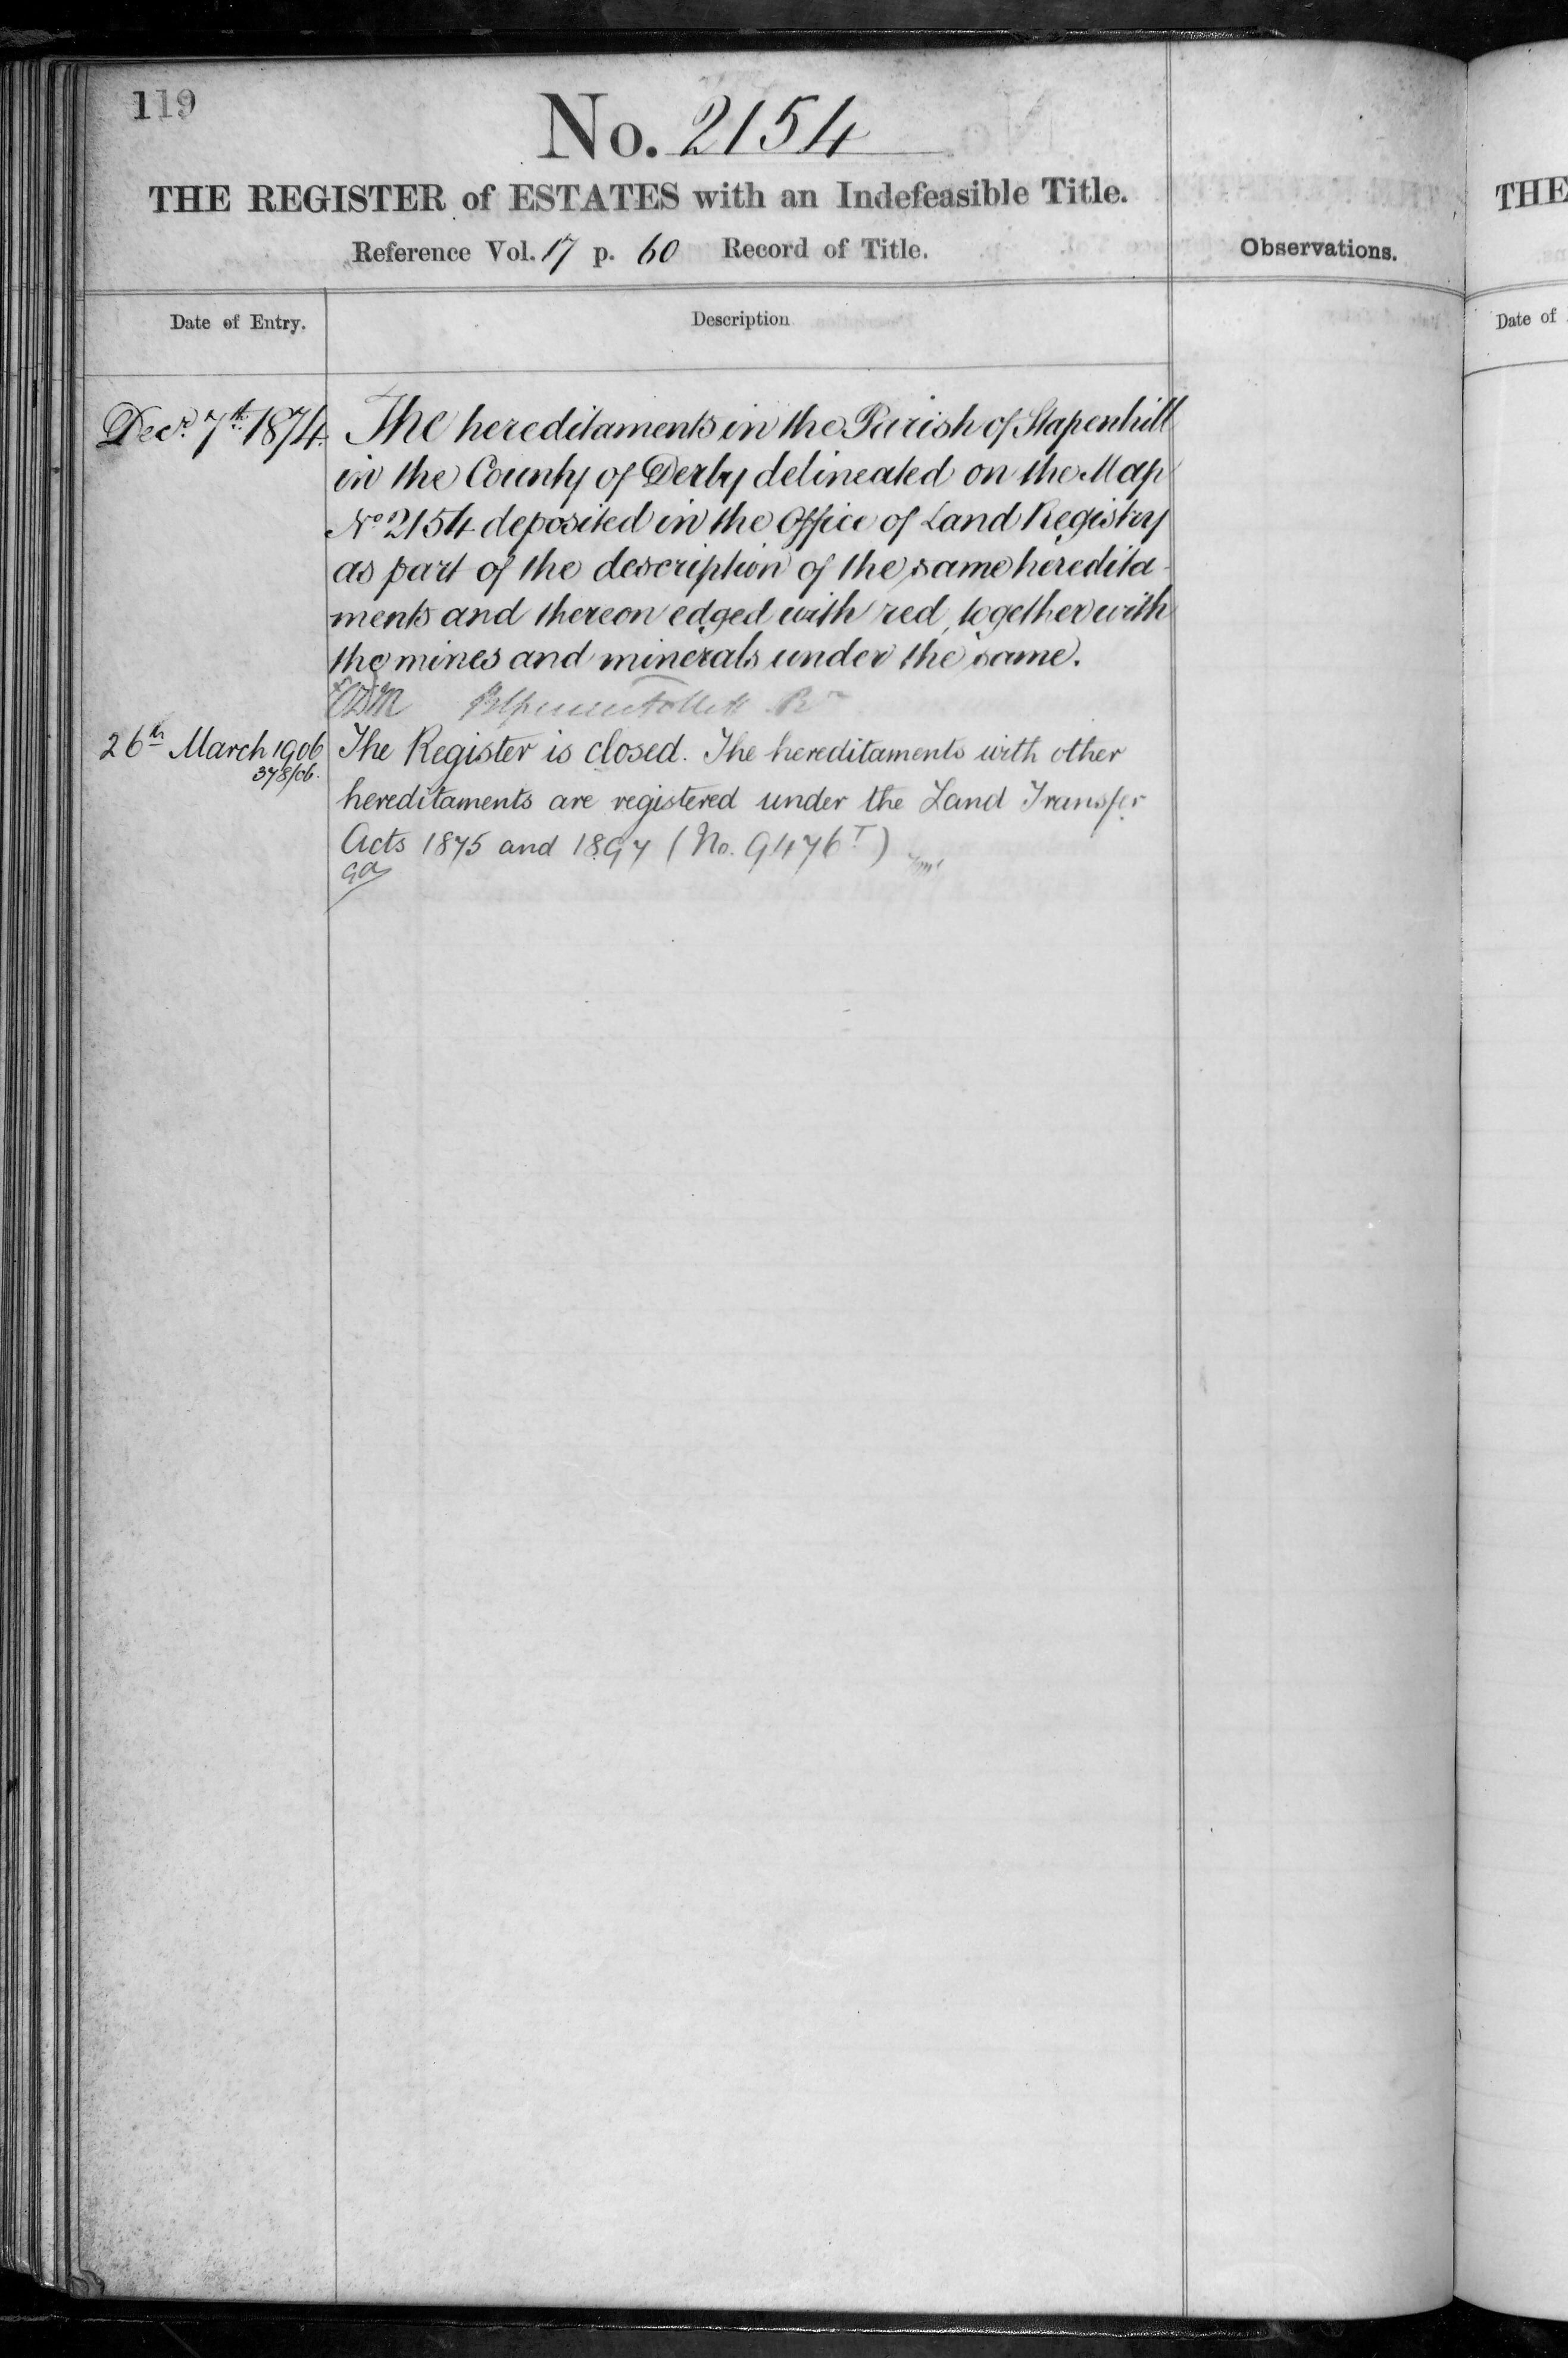 119
No. 2154
THE REGISTER of ESTATES with an Indefeasible Title.
Reference Vol. 17 p. 60 Record of Title.
Observations.
Date of Entry.
Description
Decr. 7th. 1874.
The hereditaments in the Parish of Stapenhill
in the County of Derby delineated on the Map
No 2154 deposited in the Office of Land Registry
as part of the description of the same heredita-
ments and thereon edged with red, together with
the mines and minerals under the same.
26th March 1906
378/06.
The Register is closed. The hereditaments with other
hereditaments are registered under the Land Transfer
Acts 1875 and 1897 (No. 9476T)
THE
Date of